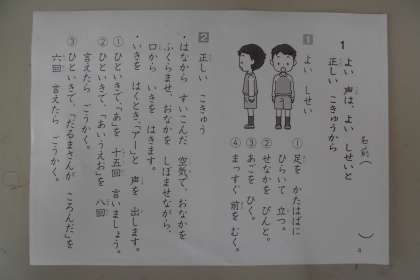 1 よい 声は、よい しせいと
正しい こきゅうから
名前( )
1 よい しせい
① 足を かたはばに
ひらいて 立つ。
② せなかを ぴんと。
③ あごを ひく。
④ まっすぐ 前を むく。
2 正しい こきゅう
・はなから すいこんだ 空気で、おなかを
ふくらませ、おなかを しぼませながら、
口から いきを はきます。
・いきを はくとき、「アー」と 声を 出します。
① ひといきで、「あ」を 十五回 言いましょう。
② ひといきで、「あいうえお」を 八回
言えたら ごうかく。
③ ひといきで、「だるまさんが ころんだ」を
六回 言えたら ごうかく。